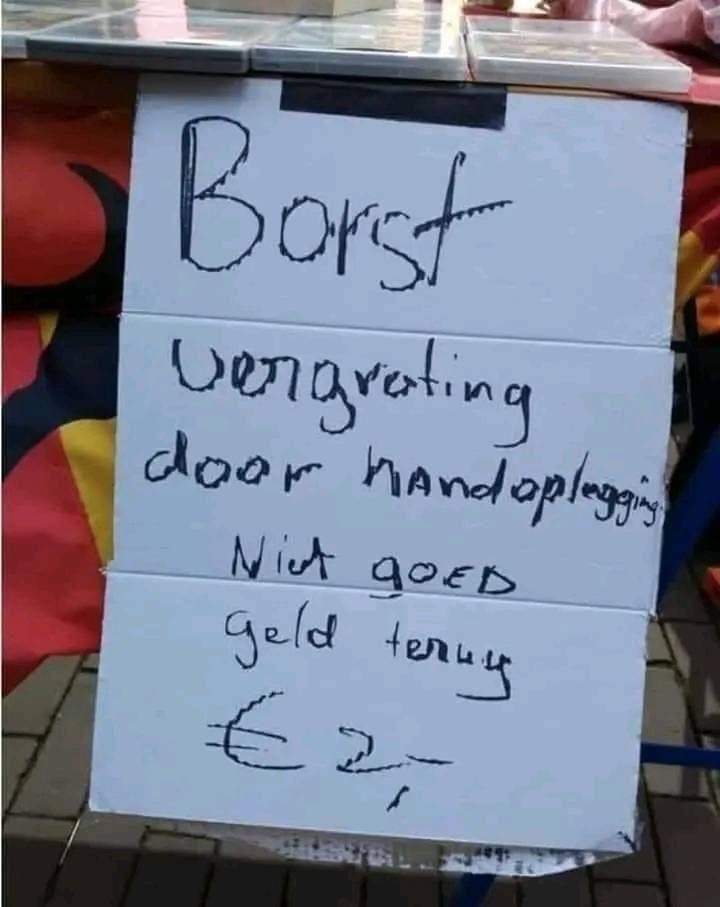 Borst
vergroting
door handoplegging
Niet goed
geld terug
€ 2,-